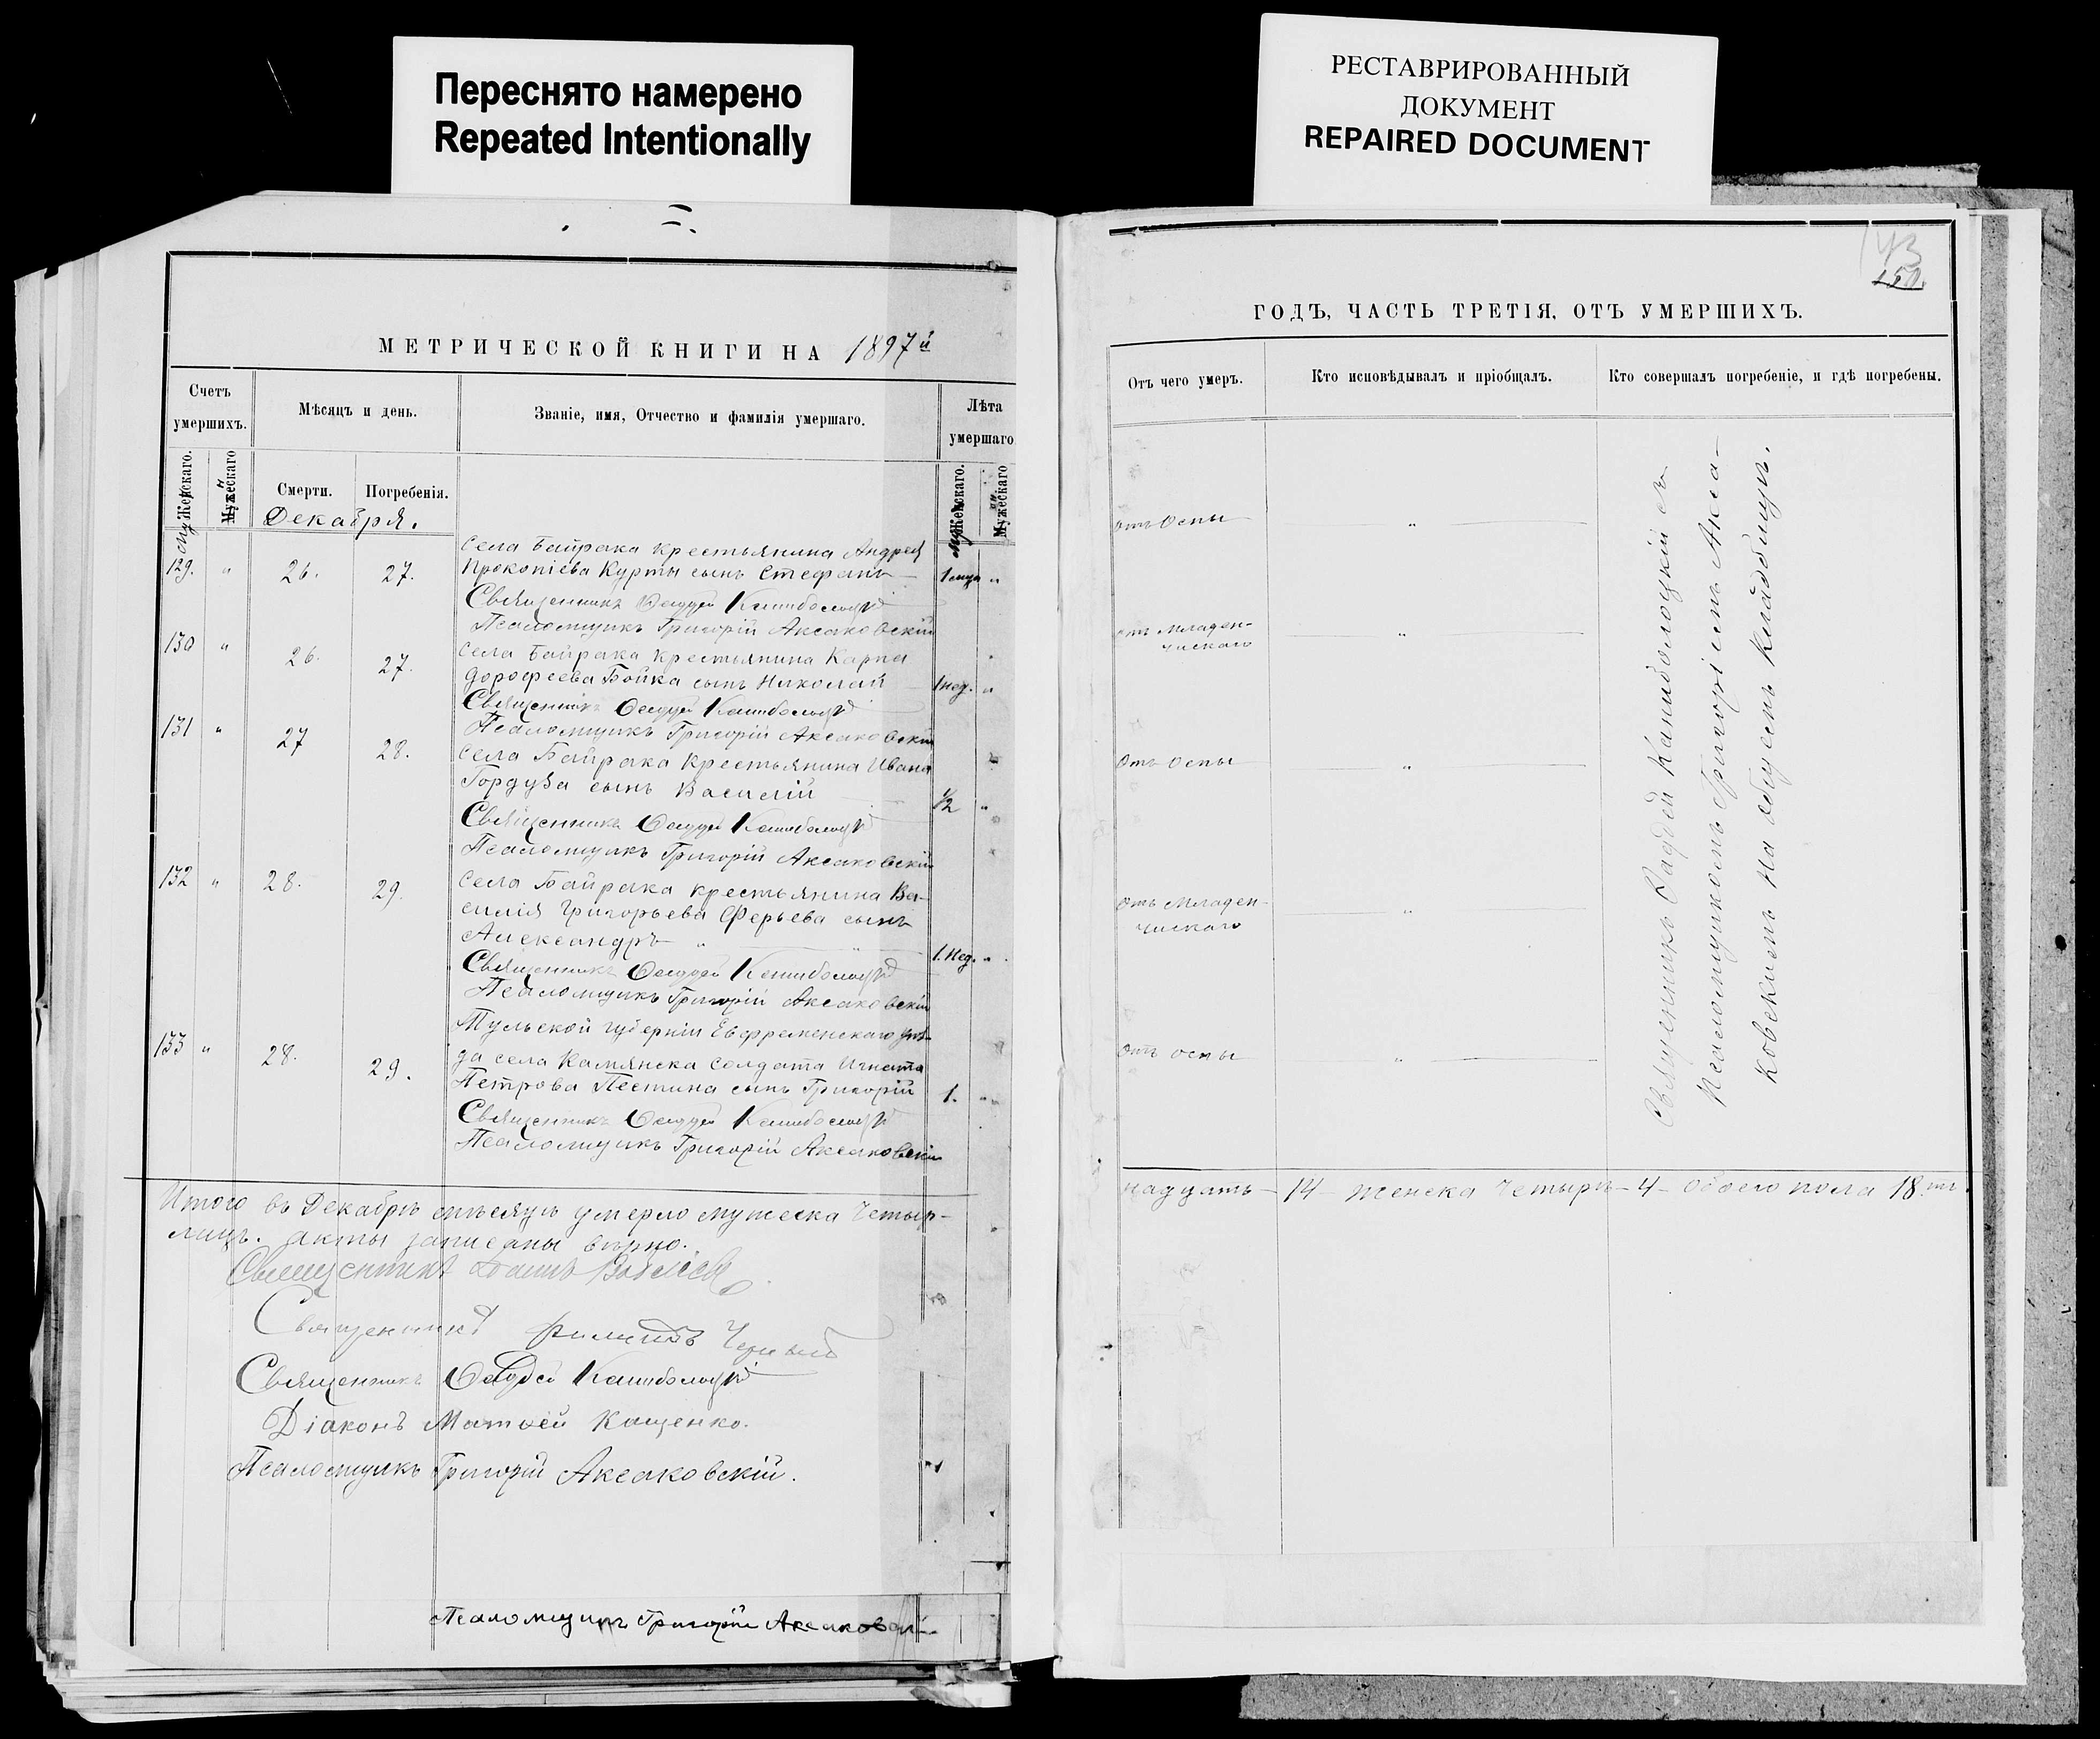 Переснято намерено
Repeated Intentionally
РЕСТАВРИРОВАННЫЙ
ДОКУМЕНТ
REPAIRED DOCUMENT
МЕТРИЧЕСКОЙ КНИГИ НА 1897й
Счетъ
умершихъ.
Мѣсяцъ и день.
Званіе, имя, Отчество и фамилія умершаго.
Лѣта
умершаго
Женскаго.
Мужескаго
Смерти.
Погребенія.
Женскаго.
Мужескаго
Декабря.
129. " 26. 27.
села Байрака крестьянина Андрея
Прокопіева Курты сынъ Стефанъ
1 мця "
Священникъ Фаддей
Псаломщикъ Григорій Аксаковскій
130 " 26. 27.
села Байрака крестьянина Карпа
Дорофеева Бойка сынъ Николай
1 нед. "
Священникъ Фаддей
Псаломщикъ Григорій Аксаковскій
131 " 27 28.
села Байрака крестьянина Ивана
Гордуза сынъ Василій
1/2 "
Священникъ Фаддей
Псаломщикъ Григорій Аксаковскій
132 " 28. 29.
села Байрака крестьянина Ва-
силія Григорьева Ферьева сынъ
Александръ "
1. Нед. "
Священникъ Фаддей
Псаломщикъ Григорій Аксаковскій
133 " 28. 29.
Тульской губерніи Евфременскаго уѣз-
да села Камянска солдата Игната
Петрова Пестина сынъ Григорій
1. "
Священникъ Фаддей
Псаломщикъ Григорій Аксаковскій
Итого въ Декабрѣ мѣсяцѣ умерло мужеска четыр-
лицъ. Акты записаны вѣрно.
Священникъ
Священникъ Филиппъ
Священникъ Фаддей
Діаконъ Матѳей Кащенко.
Псаломщикъ Григорій Аксаковскій.
Псаломщикъ Григорій Аксаковскій
143
150.
ГОДЪ, ЧАСТЬ ТРЕТІЯ, ОТЪ УМЕРШИХЪ.
Отъ чего умеръ.
Кто исповѣдывалъ и пріобщалъ.
Кто совершалъ погребеніе, и гдѣ погребены.
отъ Оспы "
отъ Младен-
ческаго "
отъ Оспы "
отъ Младен-
ческаго "
отъ оспы "
Священникъ Фаддей съ
Псаломщикомъ Григоріемъ Акса-
ковскимъ на общемъ кладбищѣ.
надцать - 14 - женска четыре - 4 - обоего пола 18.ть